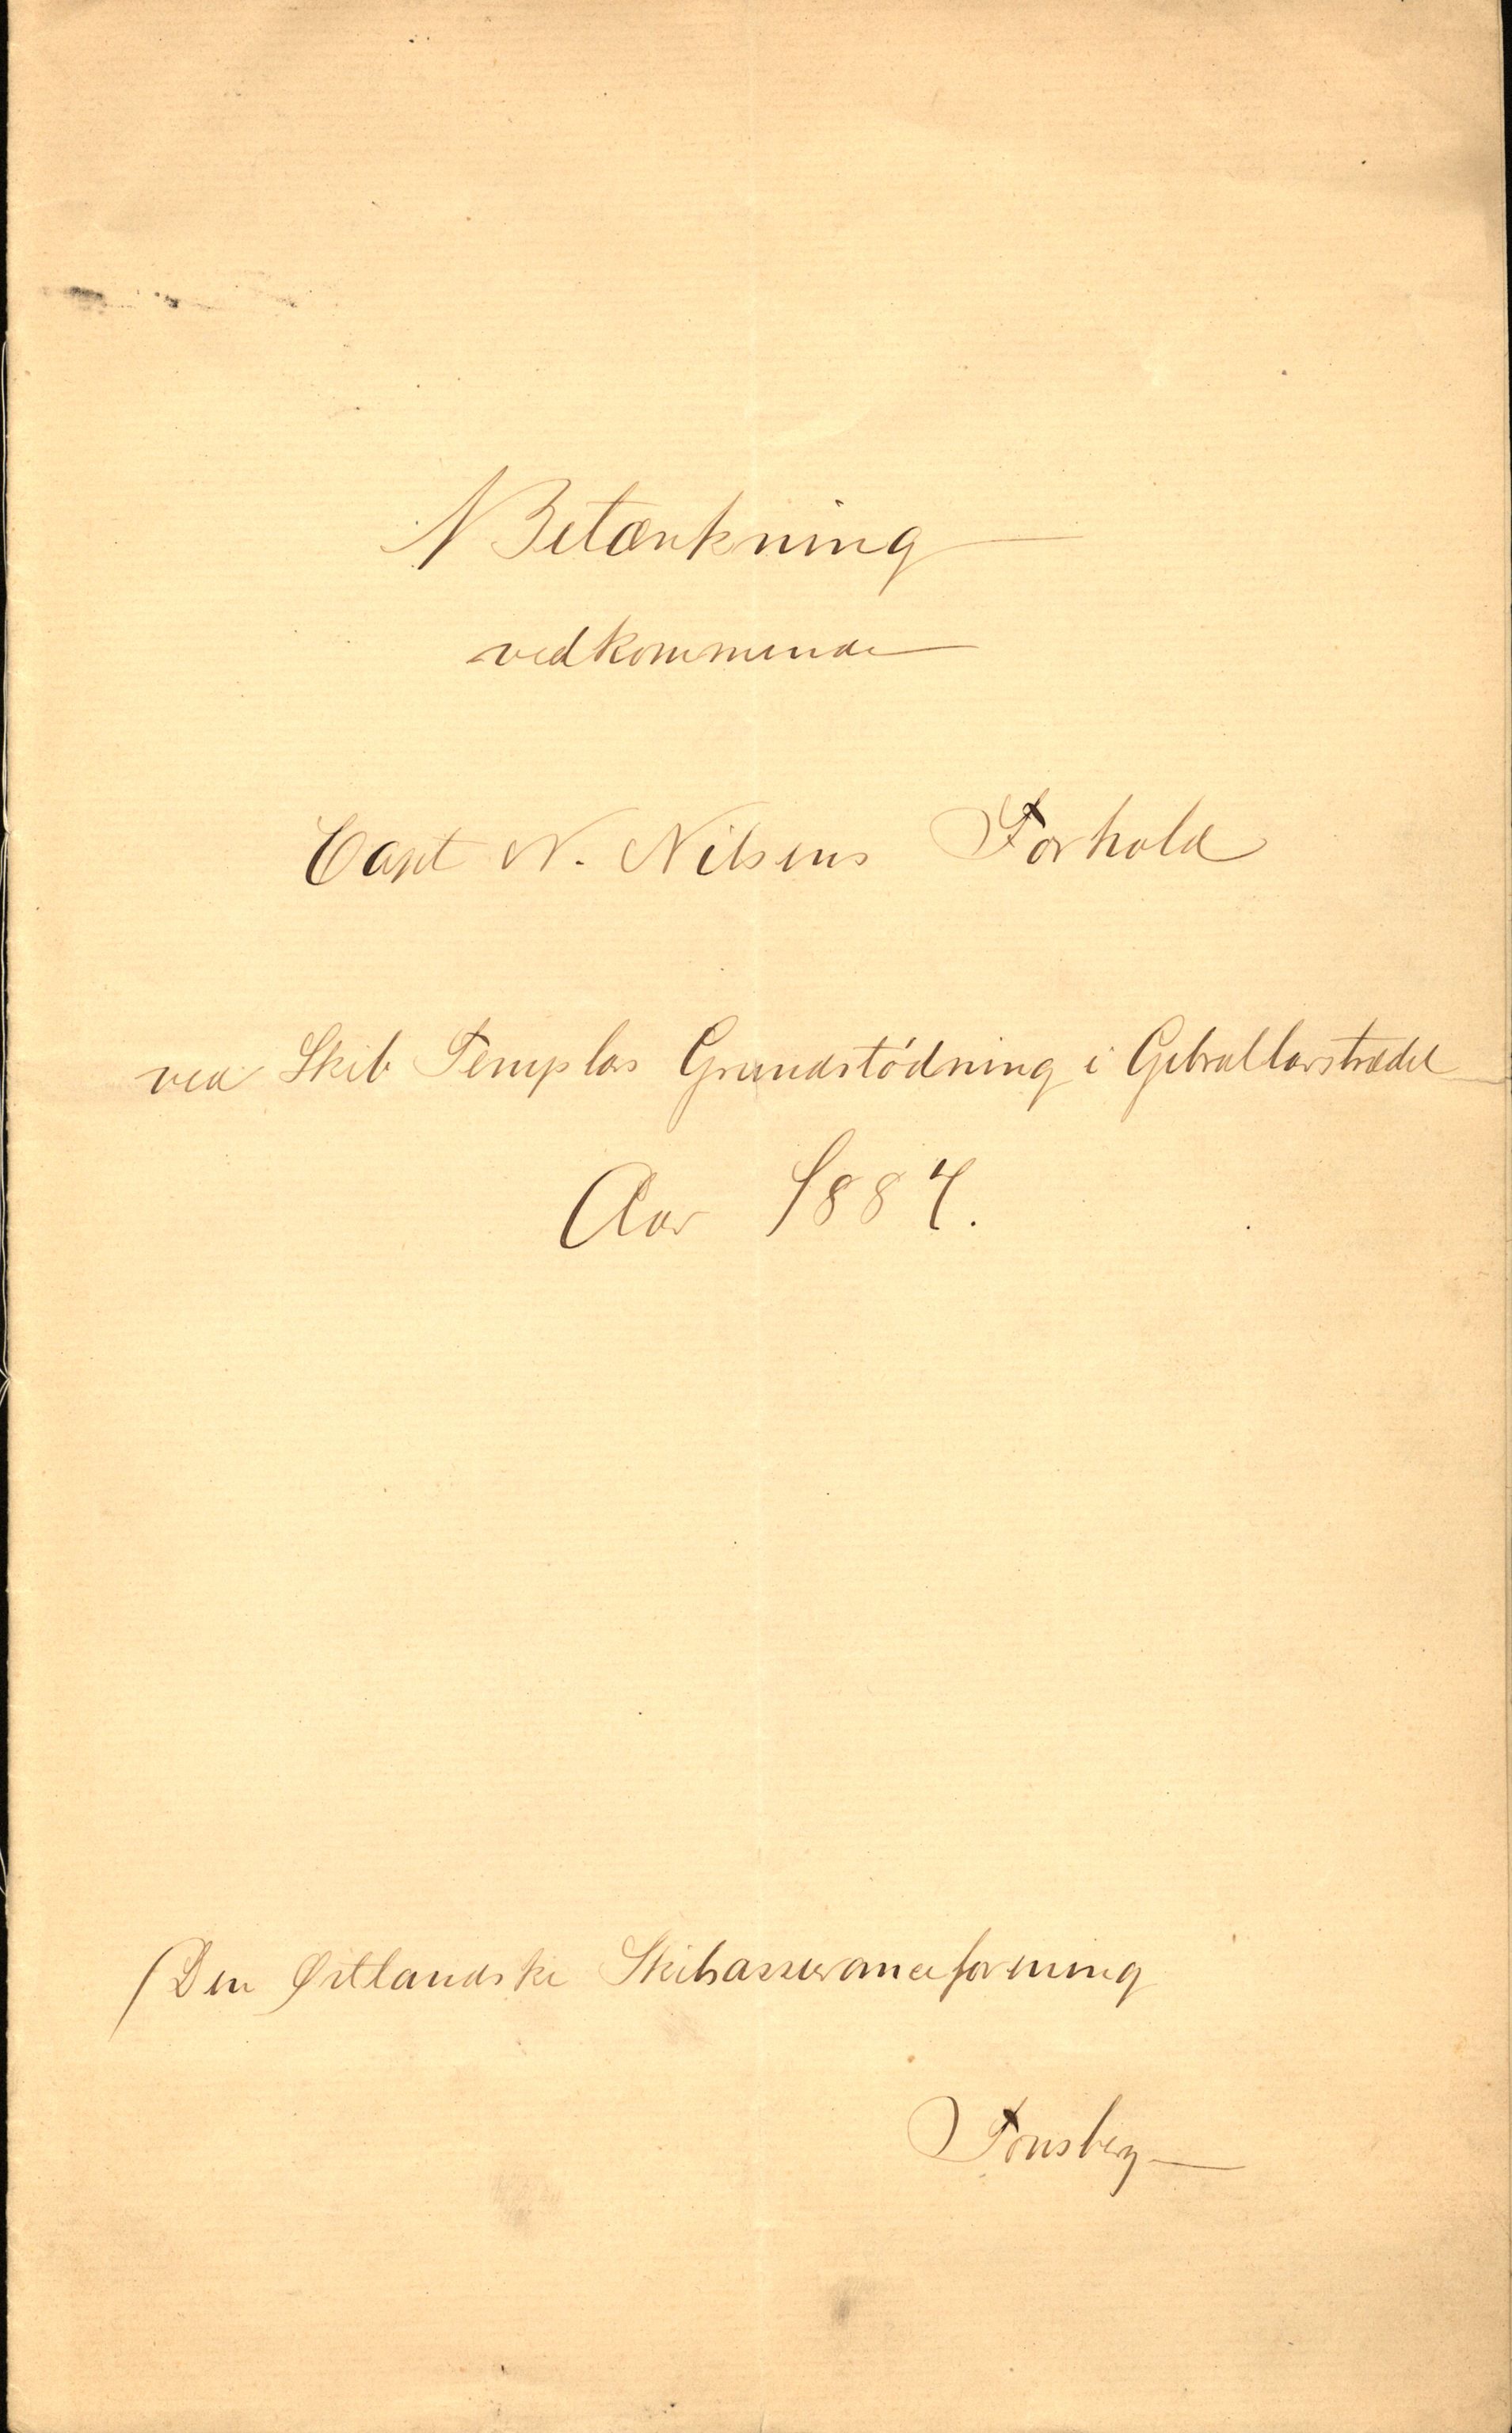 Betænkning
vedkommende
Capt N. Nilsens Forhold
ved Skib Templars Grundstødning i Gibraltarstrædet
Aar 1884.
Den Østlandske Skibsassuranceforening
Tønsberg